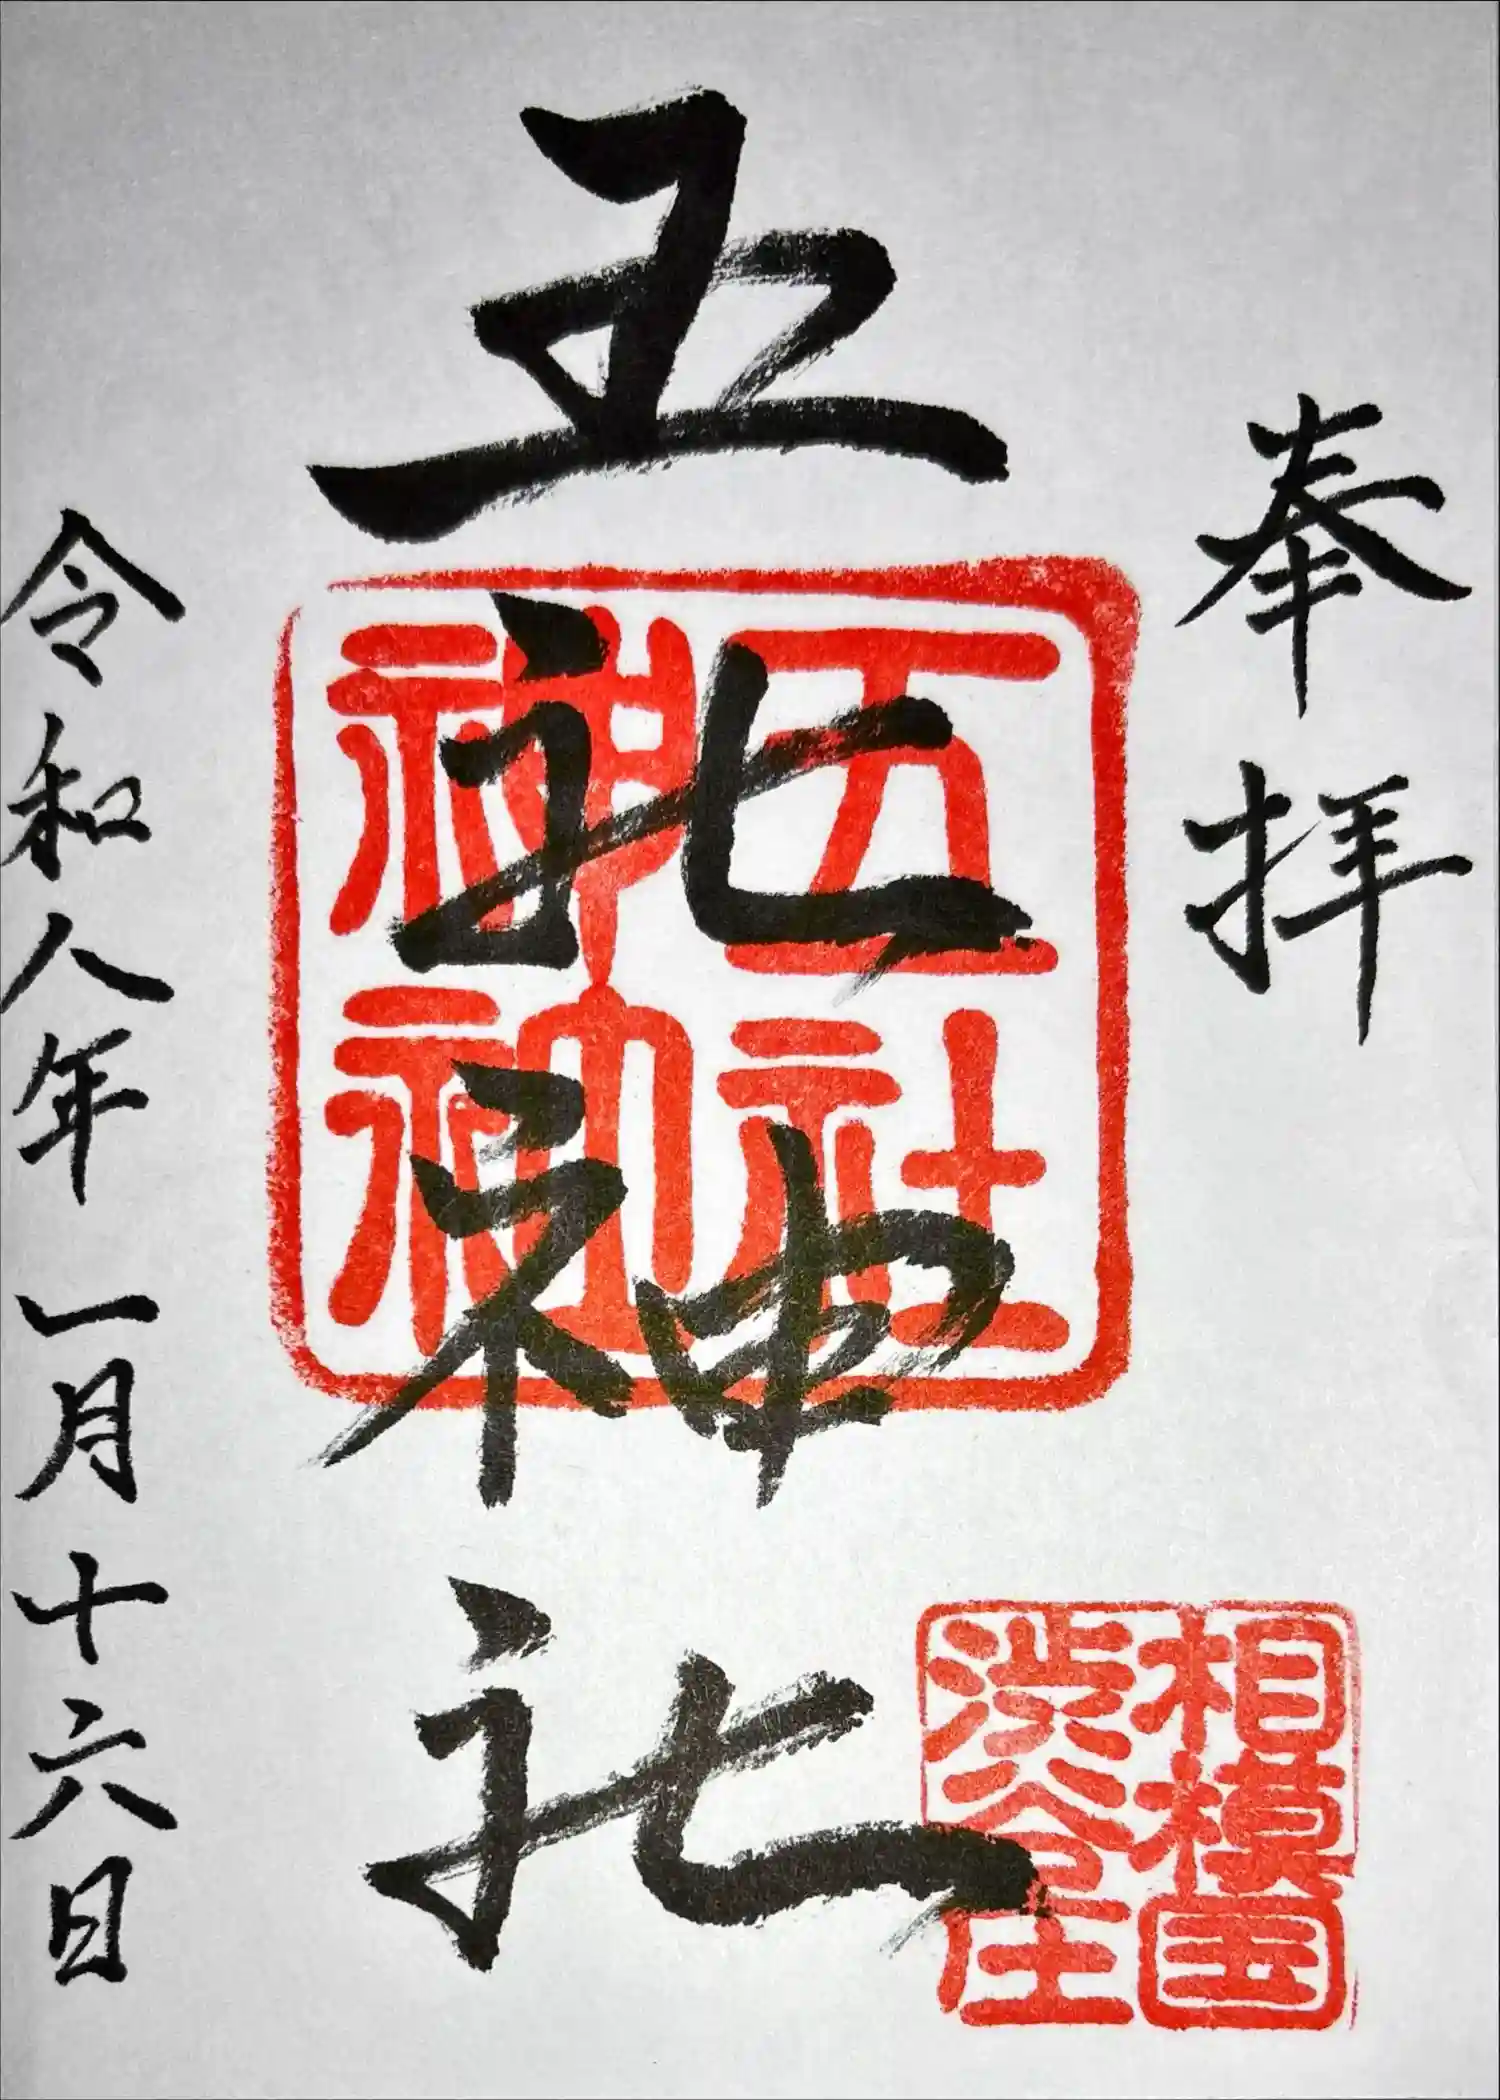 奉拝
五社神社
五社神社
相模国
渋谷庄
令和八年一月十六日